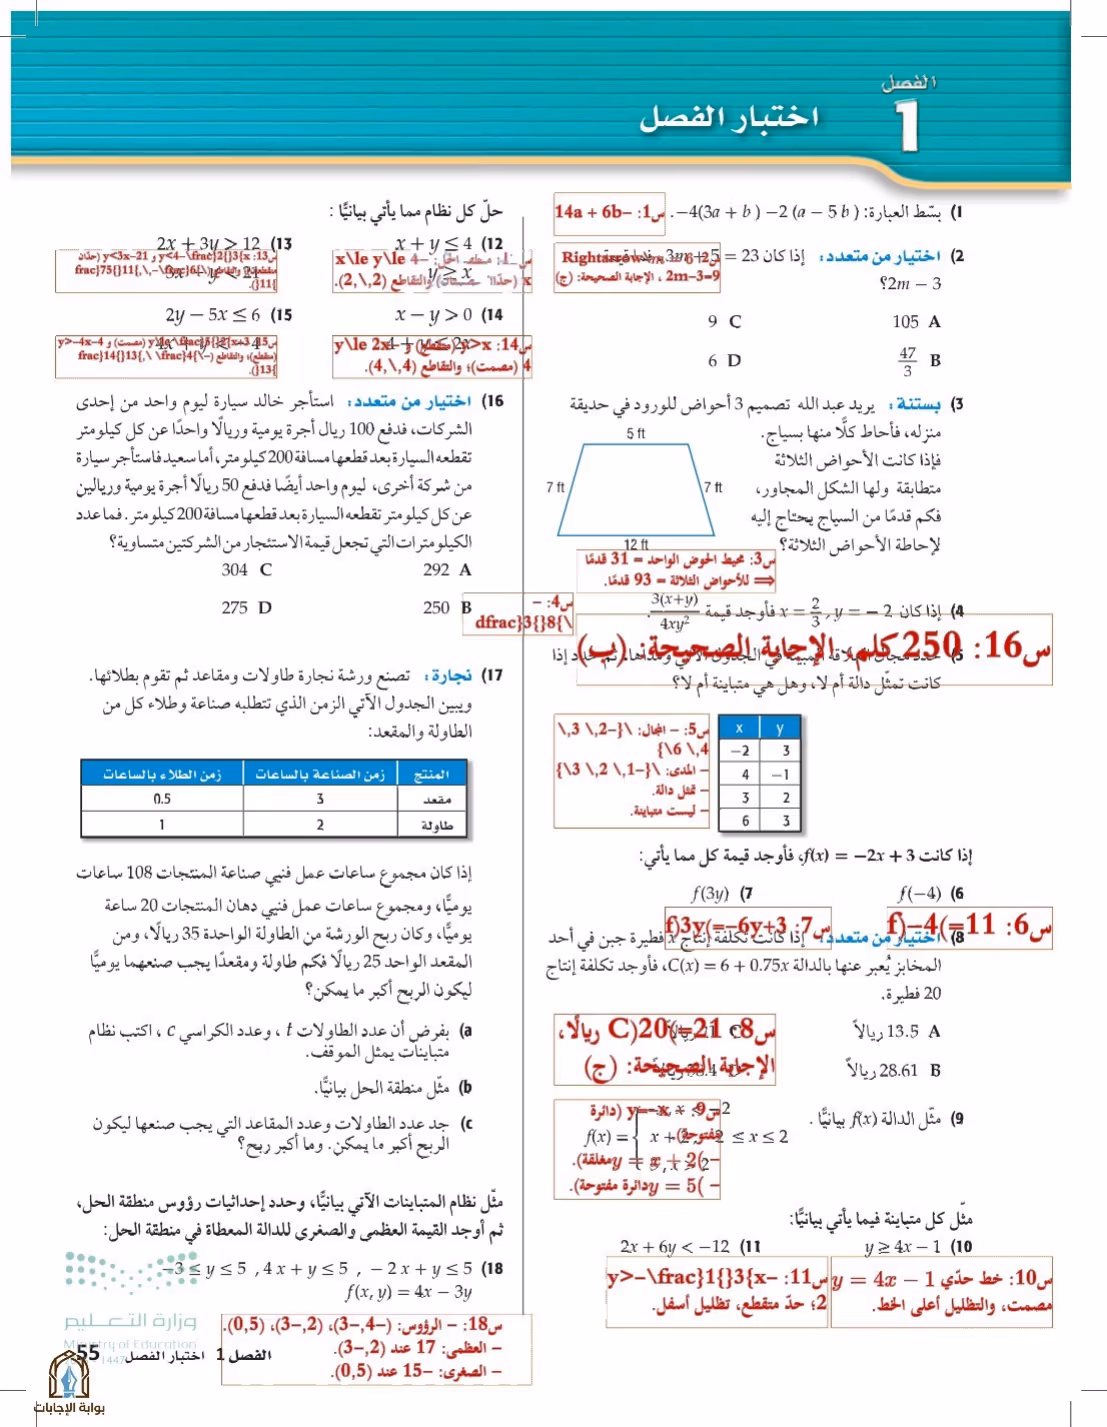 الفصل
1
اختبار الفصل
1) بسّط العبارة: −4(3a + b) −2 (a − 5b).
س1: −14a + 6b
2) اختيار من متعدد: إذا كان 3m + 5 = 23
2m − 3؟
2m−3=9 ، الإجابة الصحيحة: (ج)
105 A
9 C
47/3 B
6 D
3) بستنة: يريد عبد الله تصميم 3 أحواض للورود في حديقة
منزله، فأحاط كلًّا منها بسياج.
فإذا كانت الأحواض الثلاثة
متطابقة ولها الشكل المجاور،
فكم قدمًا من السياج يحتاج إليه
لإحاطة الأحواض الثلاثة؟
5 ft
7 ft
7 ft
12 ft
س3: محيط الحوض الواحد = 31 قدمًا
⟹ للأحواض الثلاثة = 93 قدمًا.
4) إذا كان x = 2/3 , y = −2 فأوجد قيمة 3(x+y)/4xy².
س4: −
\dfrac}3{}8{
س16: 250 كلم، الإجابة الصحيحة: (ب)
كانت تمثّل دالة أم لا، وهل هي متباينة أم لا؟
x y
−2 3
4 −1
3 2
6 3
س5: − المجال: \{−2,\ 3,\
4,\ 6\}
− المدى: \{−1,\ 2,\ 3\}
− تمثل دالة.
− ليست متباينة.
إذا كانت f(x) = −2x + 3، فأوجد قيمة كل مما يأتي:
6) f(−4)
7) f(3y)
س6: f)−4(=11
س7: f)3y(=−6y+3
8) اختيار من متعدد: إذا كانت تكلفة إنتاج x فطيرة جبن في أحد
المخابز يُعبر عنها بالدالة C(x) = 6 + 0.75x، فأوجد تكلفة إنتاج
20 فطيرة.
13.5 ريالاً A
28.61 ريالاً B
س8: C)20(=21 ريالًا،
الإجابة الصحيحة: (ج)
9) مثّل الدالة f(x) بيانيًّا.
f(x) =
س9: − y=−x (دائرة
مفتوحة).
− )y = x + 2 مغلقة).
− )y = 5 دائرة مفتوحة).
مثّل كل متباينة فيما يأتي بيانيًّا:
10) y ≥ 4x − 1
11) 2x + 6y < −12
س10: خط حدّي y = 4x − 1
مصمت، والتظليل أعلى الخط.
س11: y>−\frac}1{}3{x−
2؛ حدّ متقطع، تظليل أسفل.
حلّ كل نظام مما يأتي بيانيًّا:
12) x + y ≤ 4
y ≥ x
13) 2x + 3y > 12
3x − y < 21
x (حدّان مصمتان) والتقاطع (2,\ 2).
14) x − y > 0
4 + y ≤ 2x
15) 2y − 5x ≤ 6
س14: y<x (متقطع) و y\le 2x−
4 (مصمت)؛ والتقاطع (4,\ 4).
16) اختيار من متعدد: استأجر خالد سيارة ليوم واحد من إحدى
الشركات، فدفع 100 ريال أجرة يومية وريالًا واحدًا عن كل كيلومتر
تقطعه السيارة بعد قطعها مسافة 200 كيلومتر، أما سعيد فاستأجر سيارة
من شركة أخرى، ليوم واحد أيضًا فدفع 50 ريالًا أجرة يومية وريالين
عن كل كيلومتر تقطعه السيارة بعد قطعها مسافة 200 كيلومتر. فما عدد
الكيلومترات التي تجعل قيمة الاستئجار من الشركتين متساوية؟
292 A
304 C
250 B
275 D
17) نجارة: تصنع ورشة نجارة طاولات ومقاعد ثم تقوم بطلائها.
ويبين الجدول الآتي الزمن الذي تتطلبه صناعة وطلاء كل من
الطاولة والمقعد:
المنتج زمن الصناعة بالساعات زمن الطلاء بالساعات
مقعد 3 0.5
طاولة 2 1
إذا كان مجموع ساعات عمل فنيي صناعة المنتجات 108 ساعات
يوميًّا، ومجموع ساعات عمل فنيي دهان المنتجات 20 ساعة
يوميًّا، وكان ربح الورشة من الطاولة الواحدة 35 ريالًا، ومن
المقعد الواحد 25 ريالًا فكم طاولة ومقعدًا يجب صنعهما يوميًّا
ليكون الربح أكبر ما يمكن؟
a) بفرض أن عدد الطاولات t ، وعدد الكراسي c ، اكتب نظام
متباينات يمثل الموقف.
b) مثّل منطقة الحل بيانيًّا.
c) جد عدد الطاولات وعدد المقاعد التي يجب صنعها ليكون
الربح أكبر ما يمكن. وما أكبر ربح؟
مثّل نظام المتباينات الآتي بيانيًّا، وحدد إحداثيات رؤوس منطقة الحل،
ثم أوجد القيمة العظمى والصغرى للدالة المعطاة في منطقة الحل:
18) −3 ≤ y ≤ 5 , 4x + y ≤ 5 , −2x + y ≤ 5
f(x, y) = 4x − 3y
س18: − الرؤوس: (−4,−3)، (2,−3)، (0,5).
− العظمى: 17 عند (2,−3).
− الصغرى: −15 عند (0,5)
وزارة التعليم
Ministry of Education
1447
الفصل 1 اختبار الفصل 55
بوابة الإجابات